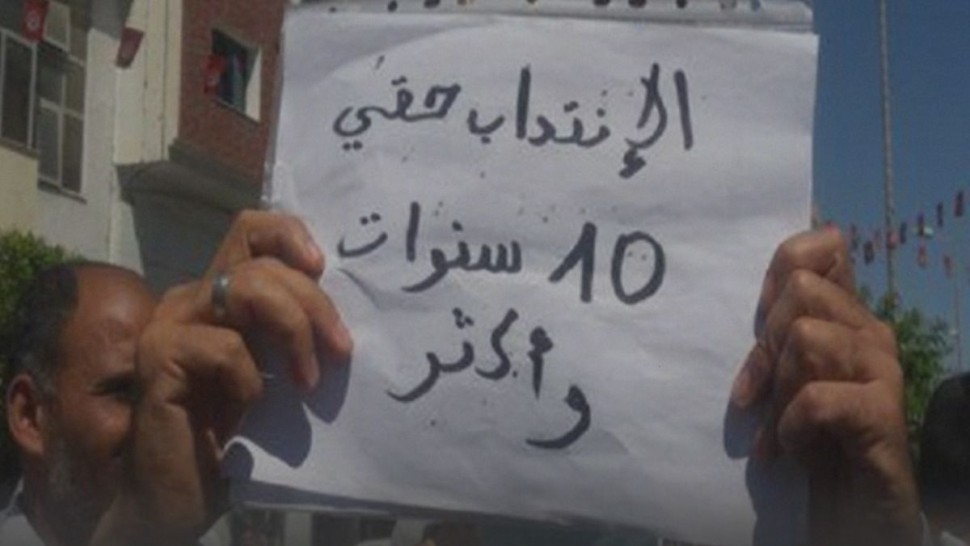 الإنتداب حقي
10 سنوات
وأكثر